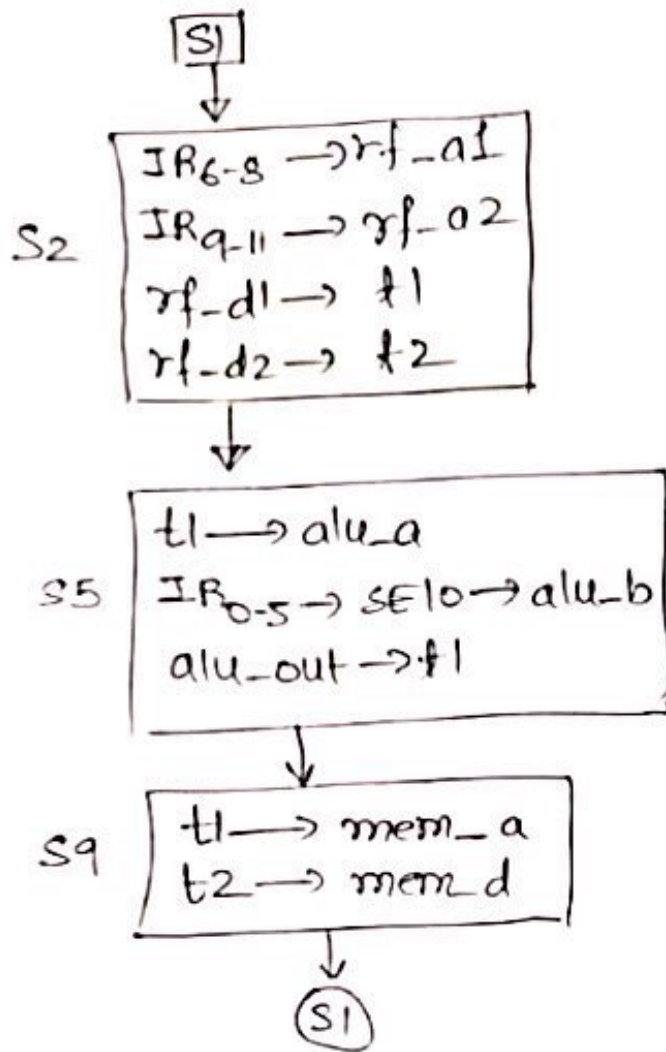 S1
S2
IR6-8 → rf_a1
IR9-11 → rf_a2
rf_d1 → t1
rf_d2 → t2
S5
t1 → alu_a
IR0-5 → SE10 → alu_b
alu_out → t1
S9
t1 → mem_a
t2 → mem_d
S1